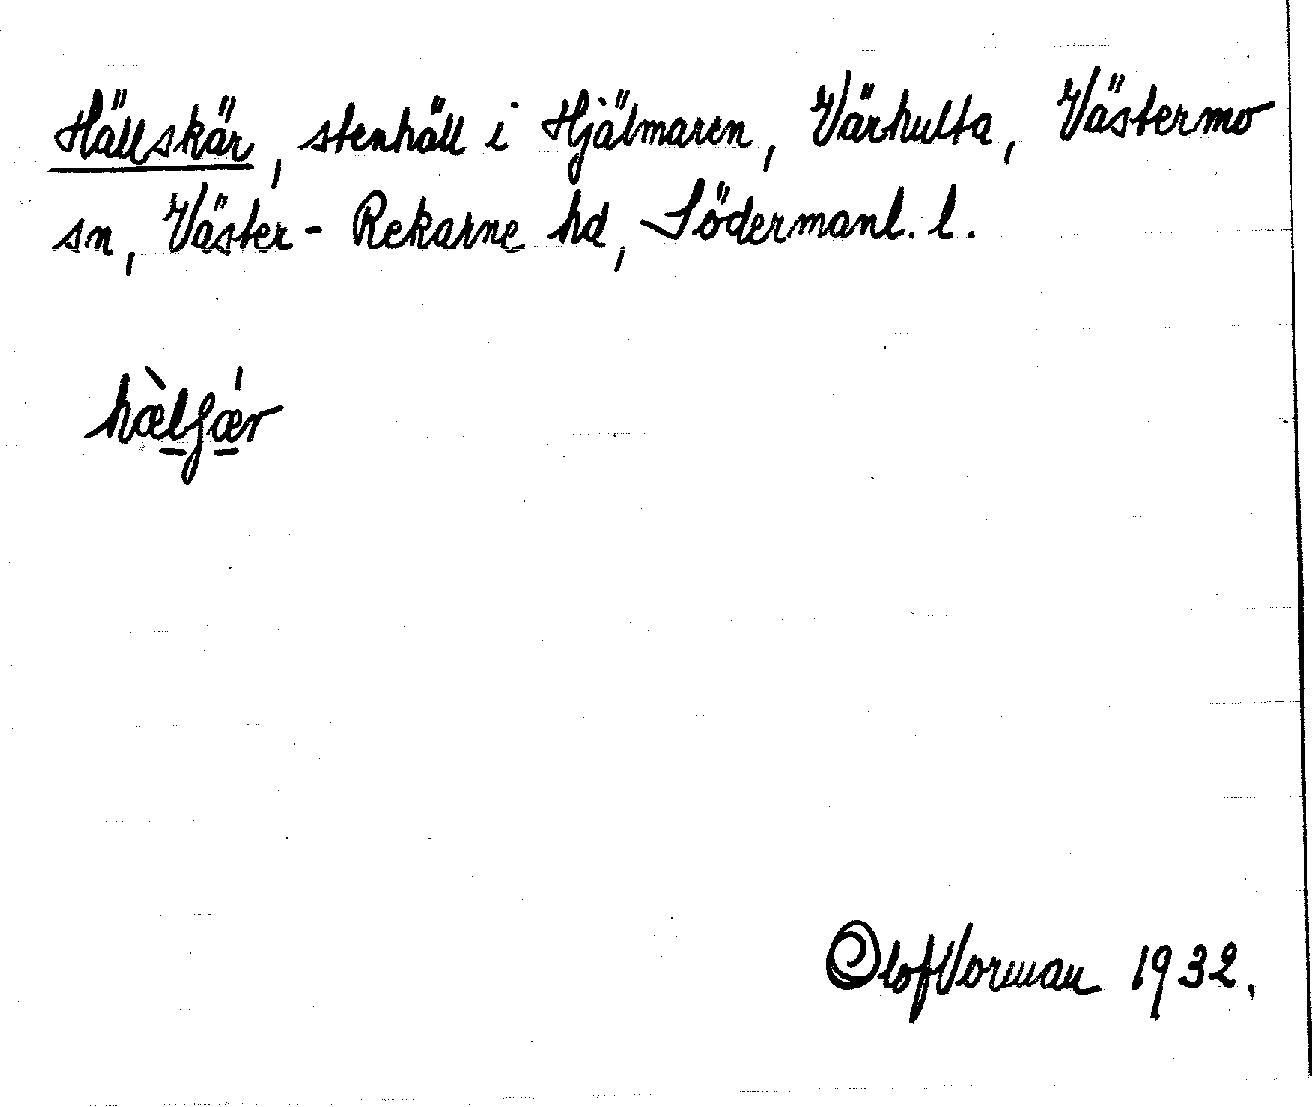 Hällskär, stenhäll i Hjälmaren, Värhulta, Västermo
sn, Väster-Rekarne hd, Södermanl. l.
hæ̀lʃǽr
Olof Vorman 1932.